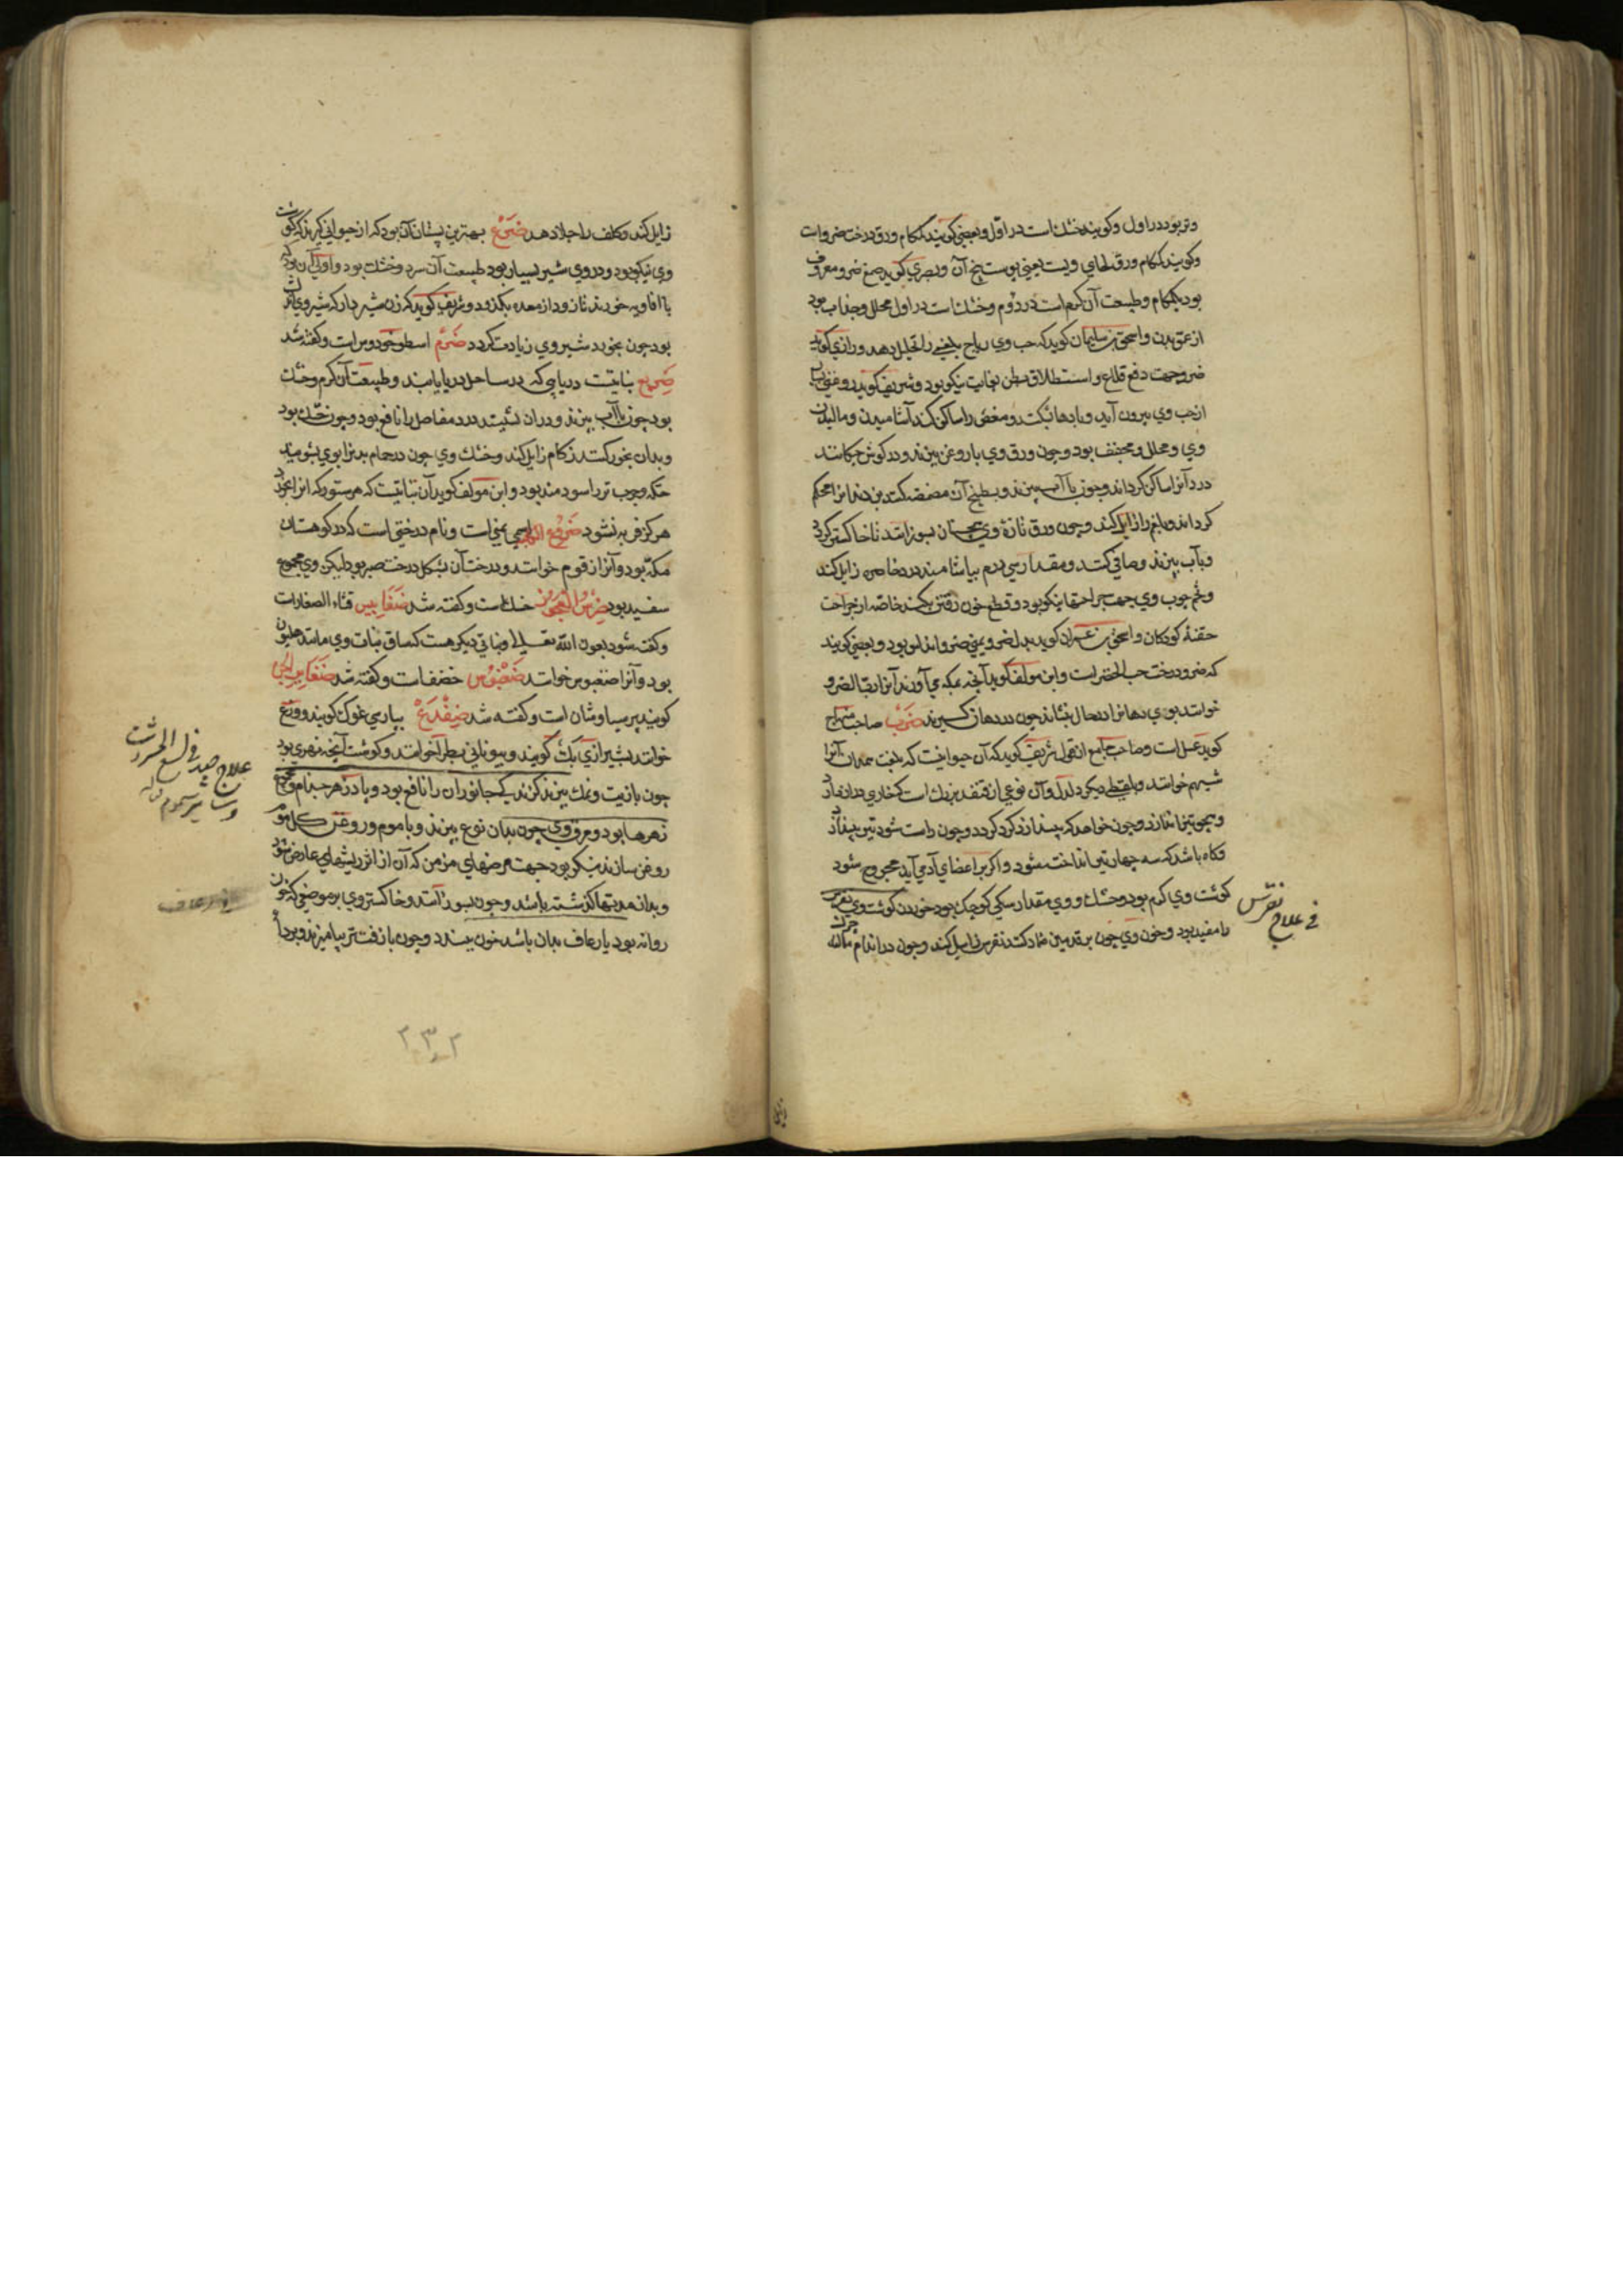 وتر بود در اول وکویند خشك است در اول وبعضی کویند کمکام ورق درخت ضرو است
وکویند کمکام ورق لحای ویست یعنی پوست بیخ آن وبصری کوید صمغ ضرو معروف
بود بکمکام وطبیعت آن کرم است در دوم وخشك است در اول محلل وجذاب بود
از عمق بدن واسحق بن سلیمان کوید که حب وی ریاح بلغمی را تحلیل دهد ورازی کوید
ضرو جهت دفع قلاع واستطلاق بطن بغایت نیکو بود وشریف کوید روغنی که
از حب وی بیرون آید وبادها بشکند ومغص را ساکن کند آشامیدن ومالیدن
وی ومحلل ومجفف بود وچون ورق وی با روغن بپزند ودر کوش چکانند
درد آنرا ساکن کرداند وچون با آب بپزند وبطبیخ آن مضمضه کنند بن دندانرا محکم
کرداند وبلغم را زایل کند وچون ورق تازهٔ وی بسوزانند تا خاکستر کردد
وبآب بپزند وصافی کنند ومقدار سی درم بیاشامند درد خاصره زایل کند
وتخم چوب وی جهت جراحتها نیکو بود وقطع خون رفتن بکند خاصه از جراحت
حقنهٔ کودکان واسحق بن عمران کوید بدل ضرو یمنی ضرو اندلس بود وبعضی کویند
که ضرو درخت حب الخضرا است وابن مولف کوید آنچه بمکه می آورند آنرا رب الضرو
خوانند بوی دهانرا در حال بنشاند چون در دهان کیرند ضرب صاحب منهاج
کوید عسل است وصاحب جامع از قول شریف کوید که آن حیوانیست که بلغت همدان آنرا
شیهم خوانند وبلفظی دیکر دلدل وآن نوعی از قنفذ بزرك است که خاری دراز دارد
وهمچو تیر اندازد وچون خواهد که بیندازد کرد کردد وچون راست شود تیر بیندازد
وکاه باشد که سه چهار تیر انداخته شود واکر بر اعضای آدمی آید مجروح شود
کوشت وی کرم بود وخشك ووی مقدار سکی کوچك بود خوردن کوشت وی نقرس
را مفید بود وخون وی چون بر قدمین ضماد کنند نقرس زایل کند وچون در اندام مالند
فی علاج نقرس
زایل کند وکلف را جلا دهد ضرع بهترین پستان آن بود که از حیوانی کیرند که کوشت
وی نیکو بود ودر وی شیر بسیار بود طبیعت آن سرد وخشك بود واولی آن بود که
با افاویه خورند تا زود از معده بکذرد وشریف کوید که زن شیردار که شیر وی اندك
بود چون بخورد شیر وی زیادت کردد ضرم اسطوخودوس است وکفته شد
ضریع نباتیست دریایی که در ساحل دریا یابند وطبیعت آن کرم وخشك
بود چون با آب بپزند ودر آن نشینند درد مفاصل را نافع بود وچون خشك بود
وبدان بخور کنند زکام زایل کند وخشك وی چون در حمام بدنرا بوی بشویند
حکه وجرب تر را سودمند بود وابن مولف کوید آن نباتیست که هر ستور که آنرا بخورد
هرکز فربه نشود ضروع الکلبه اسمی یمنی است ونام درختی است که در کوهستان
مکه بود وآنرا زقوم خوانند ودرخت آن بشکل درخت صبر بود لیکن وی مجموع
سفید بود ضرس العجوز خسك است وکفته شد ضغابیس قثاء الصغار است
وکفته شود بعون الله تعالی ونباتی دیکر هست که ساق نبات وی مانند هلیون
بود وآنرا ضغبوس خوانند ضغبوس خضف است وکفته شد
کویند پرسیاوشان است وکفته شد ضفدع بپارسی غوك کویند ووزغ
خوانند بشیرازی بك کویند وبیونانی بطراخو خوانند وکوشت آنچه نهری بود
چون با زیت ونمك بپزند کزندکی جانوران را نافع بود وپادزهر جذام ومجموع
زهرها بود ومرق وی چون بدان نوع بپزند وبا موم وروغن کل موم
روغن سازند نیکو بود جهت مرضهای مزمن که آن از اثر ریشهای عارض شود
وبدان مدتها کذشته باشد وچون بسوزانند وخاکستر وی بر موضعی که خون
روانه بود یا رعاف بدان باشد خون ببندد وچون با زفت تر بیامیزند وبر داء
علاج جید فی لسع الحشرات
وسایر سموم
رعاف
۲۳۲